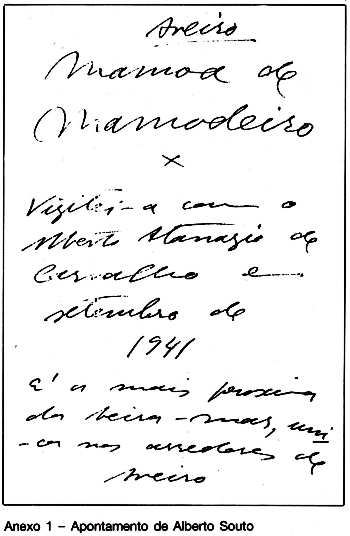 Aveiro
Mamoa de
Mamodeiro
x
Visitei-a com o
Alberto Atanazio de
Carvalho em
setembro de
1941
E' a mais proxima
da beira-mar, uni
-ca nos arredores de
Aveiro
Anexo 1 – Apontamento de Alberto Souto